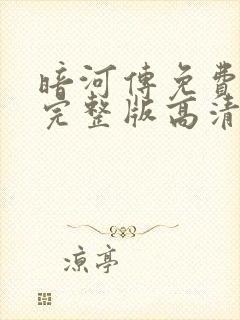 暗河傳免費
完整版高清
凉亭